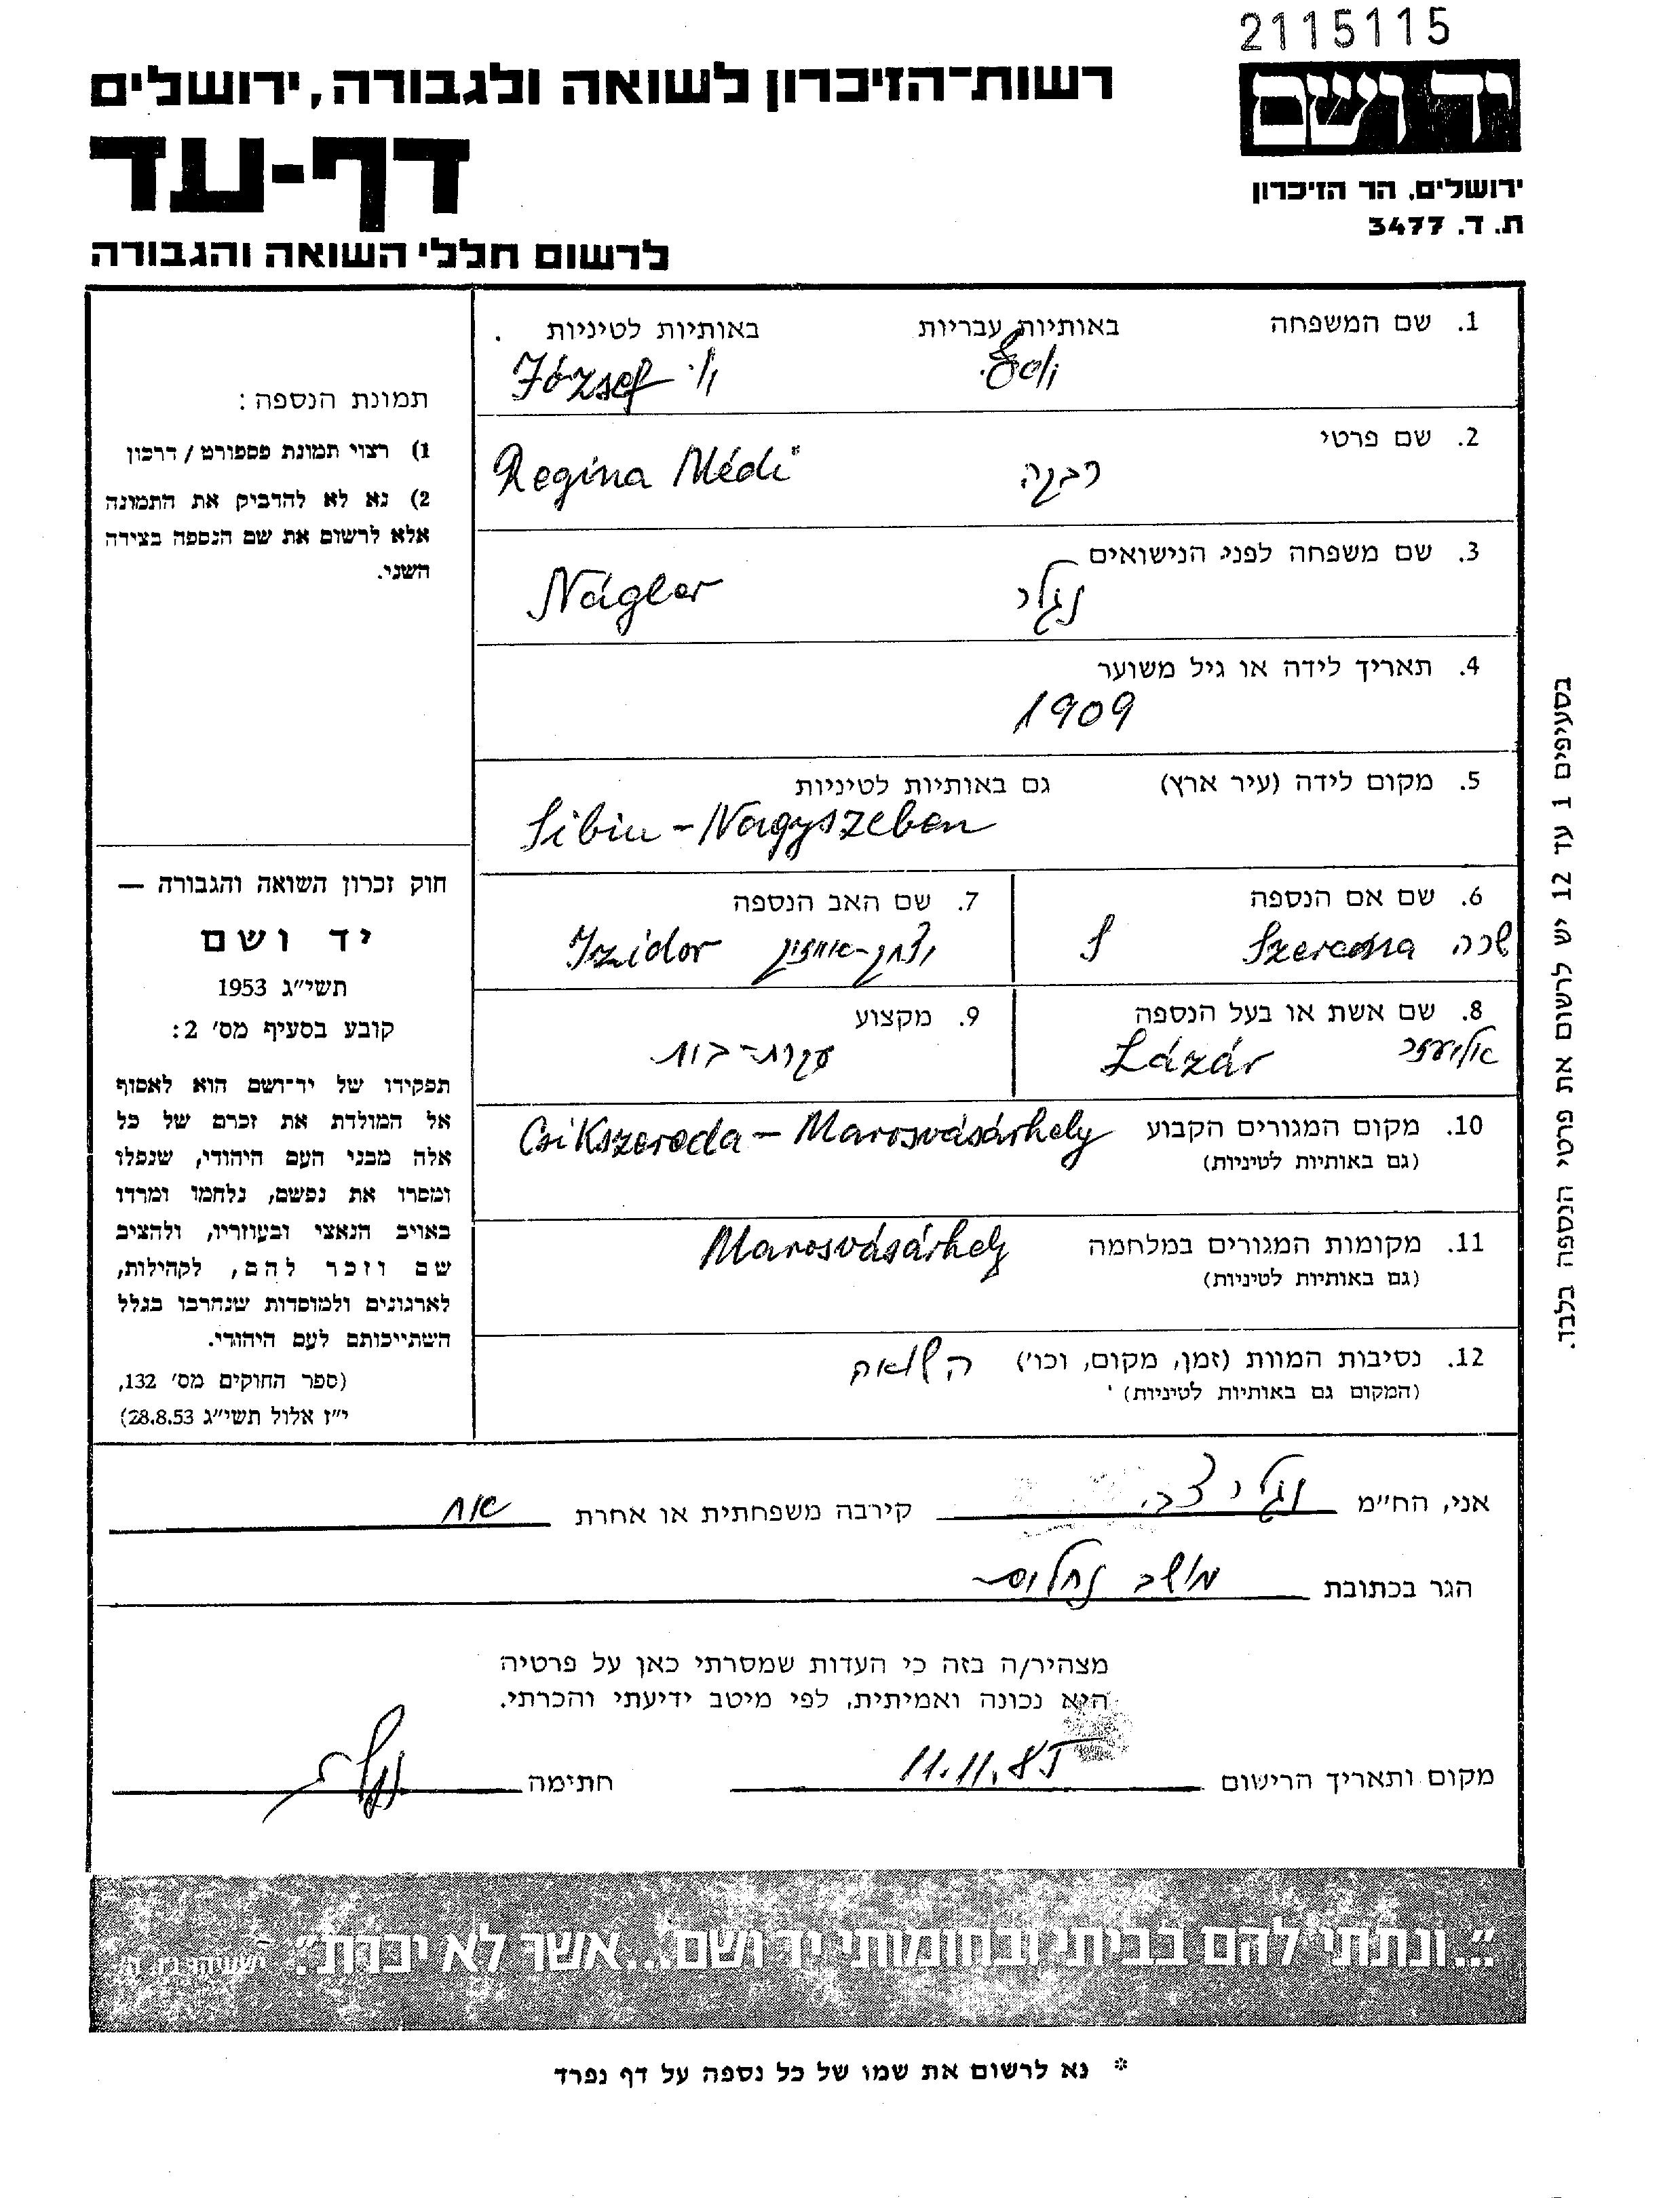 2115115
יד ושם
ירושלים, הר הזיכרון
ת. ד. 3477
רשות־הזיכרון לשואה ולגבורה, ירושלים
דף-עד
לרשום חללי השואה והגבורה
1. שם המשפחה באותיות עבריות באותיות לטיניות
József
2. שם פרטי
רבקה Regina Médi
3. שם משפחה לפני הנישואים
נגלר Nágler
4. תאריך לידה או גיל משוער
1909
5. מקום לידה (עיר ארץ) גם באותיות לטיניות
Sibiu - Nagyszeben
6. שם אם הנספה
שרה
7. שם האב הנספה
Izidor
8. שם אשת או בעל הנספה
אליעזר Lázár
9. מקצוע
עקרת-בית
10. מקום המגורים הקבוע Csikszereda - Marosvásárhely
(גם באותיות לטיניות)
11. מקומות המגורים במלחמה Marosvásárhely
(גם באותיות לטיניות)
12. נסיבות המוות (זמן, מקום, וכו') השואה
(המקום גם באותיות לטיניות)
תמונת הנספה:
1) רצוי תמונת פספורט / דרכון
2) נא לא להדביק את התמונה
אלא לרשום את שם הנספה בצידה
השני.
חוק זכרון השואה והגבורה —
יד ושם
תשי״ג 1953
קובע בסעיף מס' 2:
תפקידו של יד־ושם הוא לאסוף
אל המולדת את זכרם של כל
אלה מבני העם היהודי, שנפלו
ומסרו את נפשם, נלחמו ומרדו
באויב הנאצי ובעוזריו, ולהציב
שם וזכר להם, לקהילות,
לארגונים ולמוסדות שנחרבו בגלל
השתייכותם לעם היהודי.
(ספר החוקים מס' 132,
י״ז אלול תשי״ג 28.8.53)
בסעיפים 1 עד 12 יש לרשום את פרטי הנספה בלבד.
אני, הח״מ נגלר צבי קירבה משפחתית או אחרת אח
הגר בכתובת מושב נחלים
מצהיר/ה בזה כי העדות שמסרתי כאן על פרטיה
היא נכונה ואמיתית, לפי מיטב ידיעתי והכרתי.
מקום ותאריך הרישום 11.11.85 חתימה
״...ונתתי להם בביתי ובחומותי יד ושם...אשר לא יכרת״. ישעיהו נו, ה'
* נא לרשום את שמו של כל נספה על דף נפרד